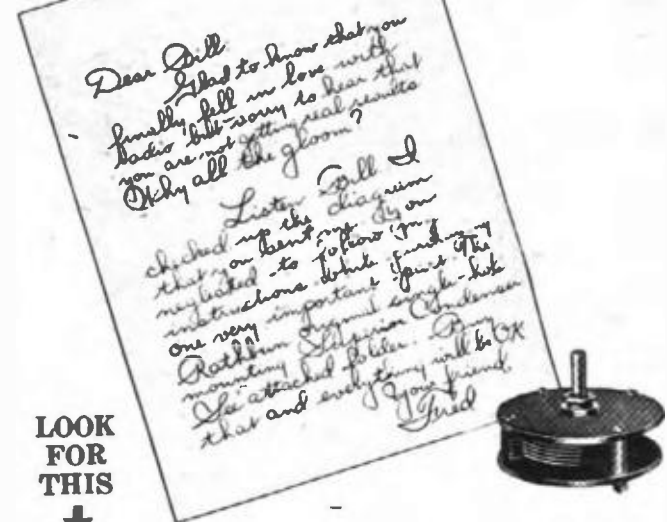 Dear Bill
Glad to know that you
finally fell in love with
Radio but sorry to hear that
you are not getting real results
Why all the gloom?
Listen Bill I
checked up the diagram
that you sent me. You
neglected to follow my
instructions while purchasing
one very important part "The
Rathbun Original single-hole
mounting Superior Condenser
See attached folder. Buy
that and everything will be OK
Your friend
Fred
LOOK
FOR
THIS